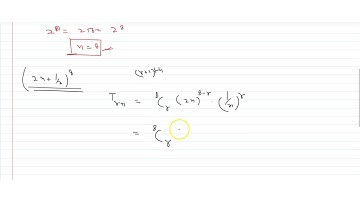 2ⁿ = 256 = 2⁸
n = 8
(2x + 1/x)⁸
(r+1)th
Tᵣ₊₁ = ⁸Cᵣ (2x)⁸⁻ʳ · (1/x)ʳ
= ⁸Cᵣ